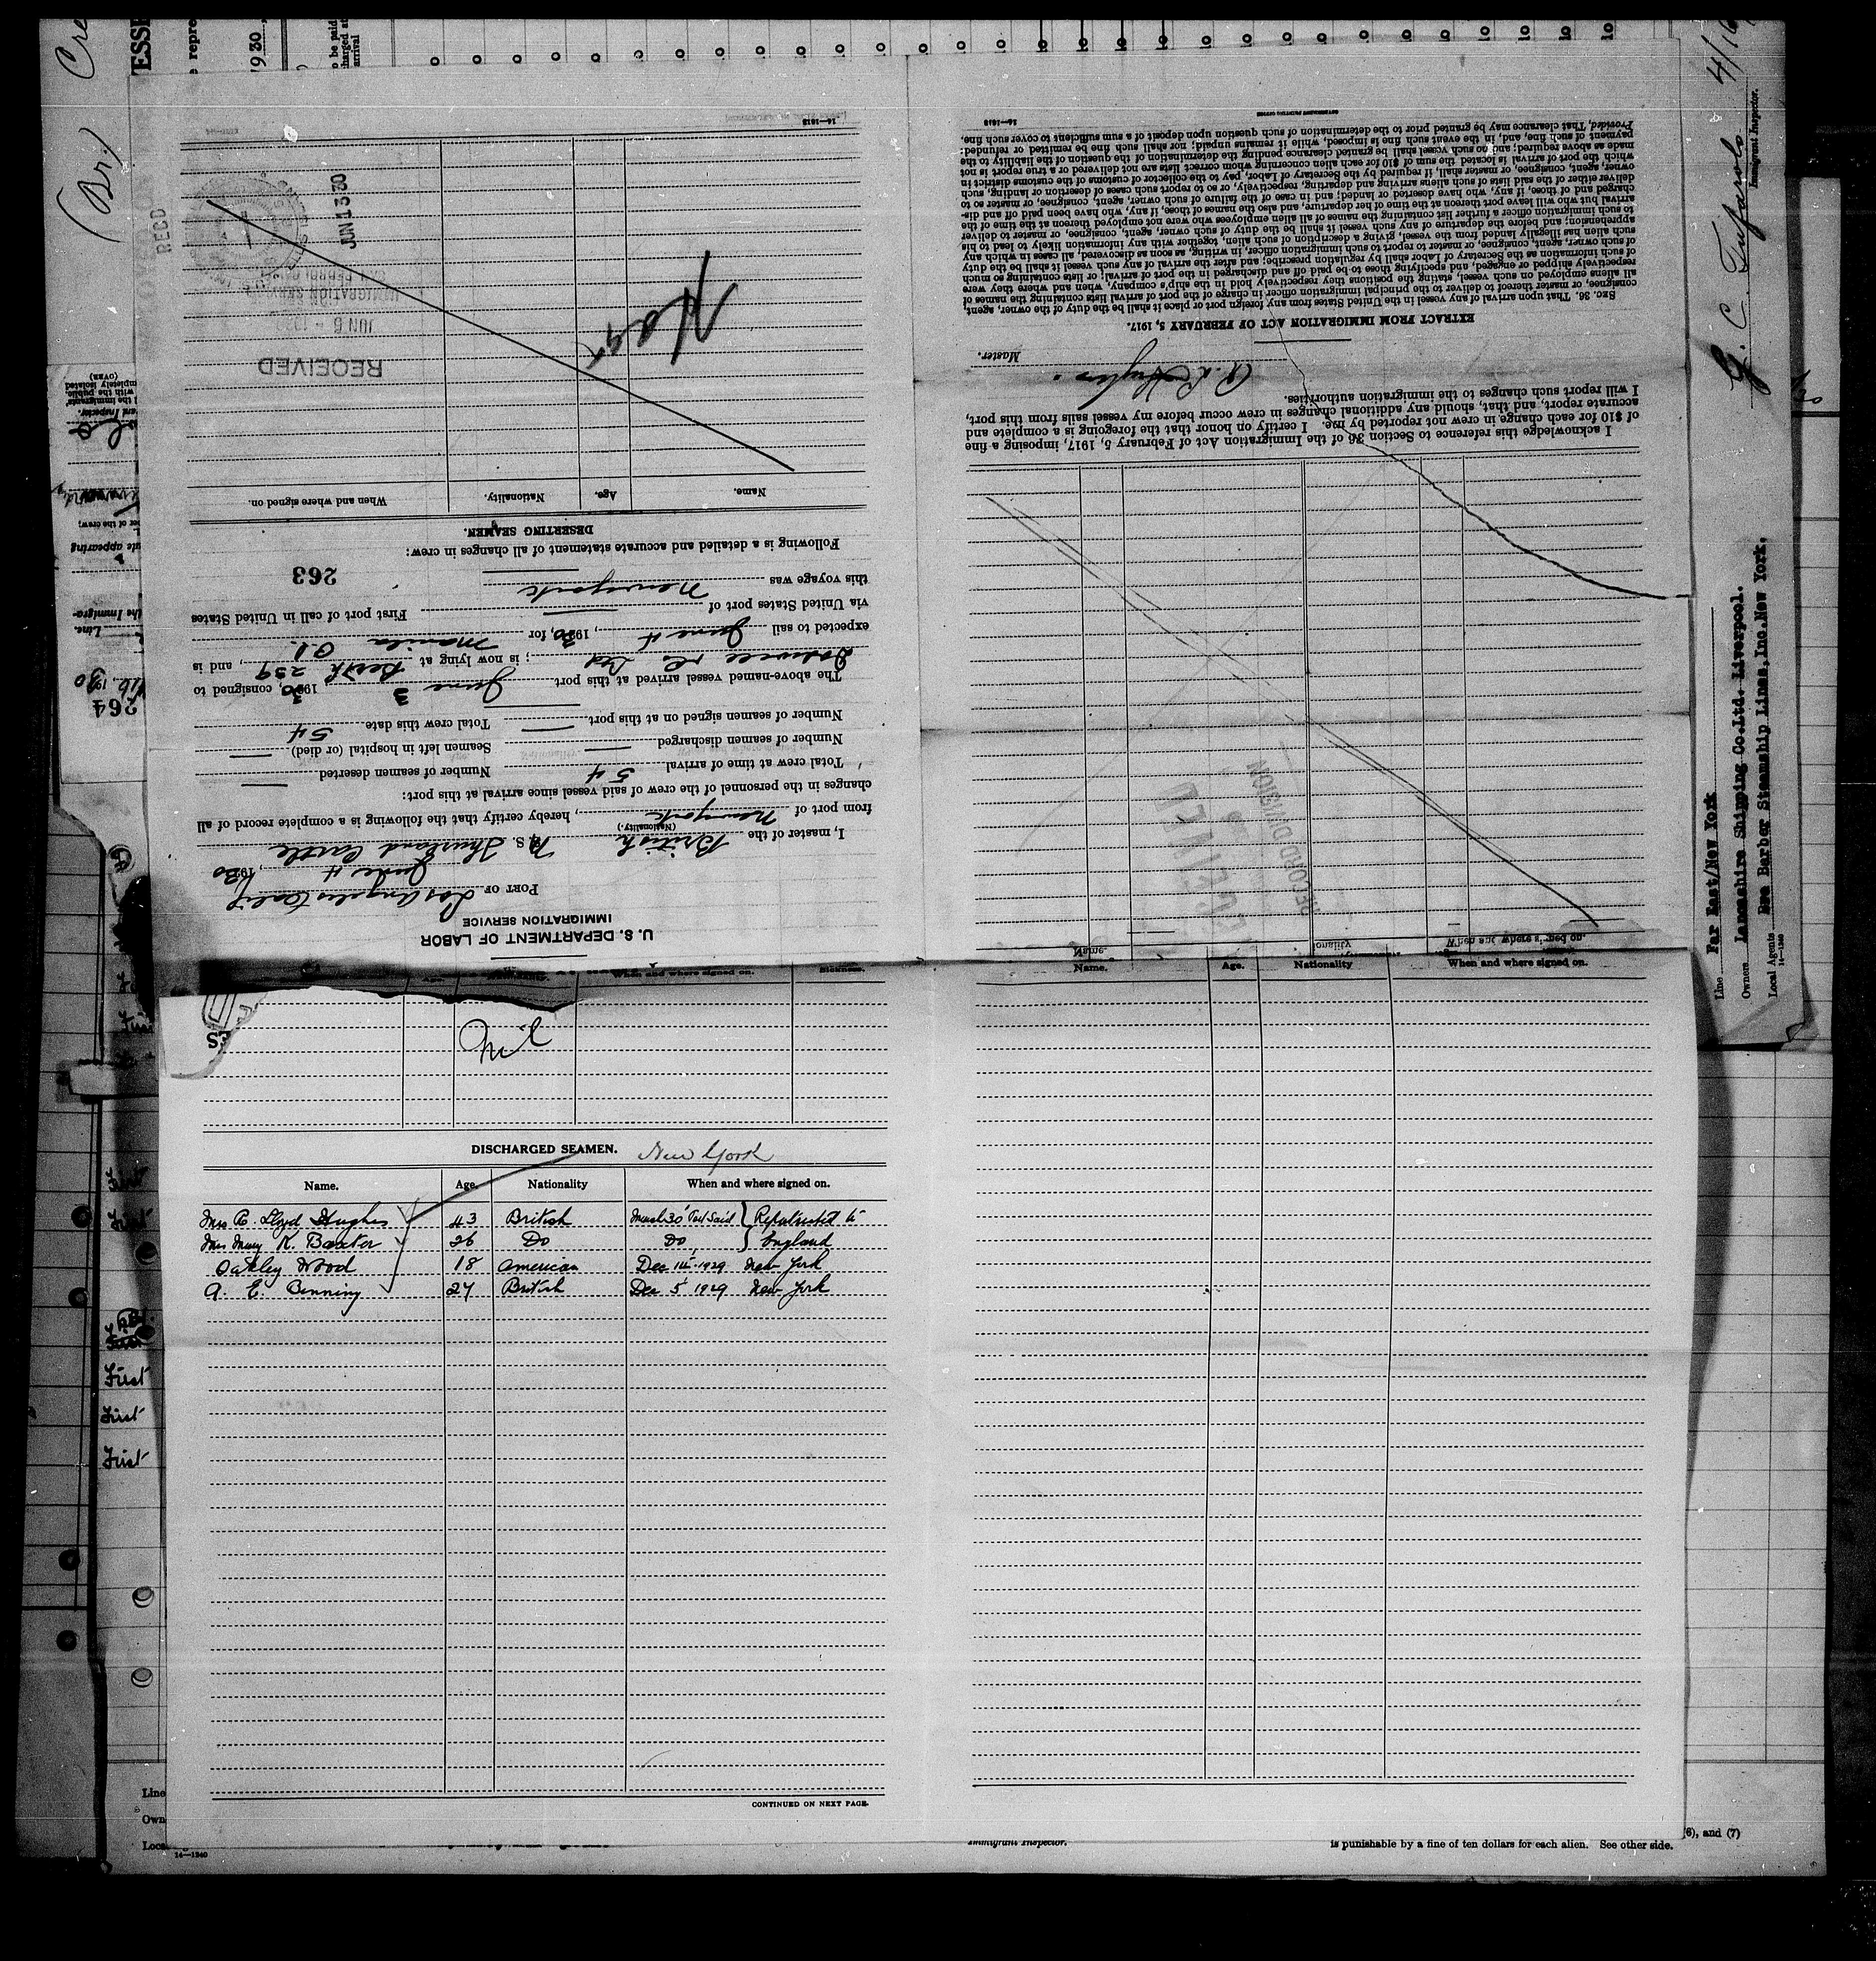 Cre
(Br)
ESSE
e repre
1930,
to be paid
charged at
arrival
REC'D
4/16
G. C. Tufarolo
Immigrant Inspector.
Line Far East/New York
Owners Lancashire Shipping Co.Ltd. Liverpool.
Local Agents Bee Barber Steamship Lines,Inc.New York.
14—1240
U. S. DEPARTMENT OF LABOR
IMMIGRATION SERVICE
PORT OF Los Angeles Calif
June 4, 1930
I, master of the British S. Thurland Castle
(Nationality.)
from port of Newyork, hereby certify that the following is a complete record of all
changes in the personnel of the crew of said vessel since arrival at this port:
Total crew at time of arrival 54 Number of seamen deserted —
Number of seamen discharged — Seamen left in hospital (or died) —
Number of seamen signed on at this port — Total crew this date 54
The above-named vessel arrived at this port June 3 1930, consigned to
; is now lying at Berth 239, and is
expected to sail June 4, 1930, for Manila P.I.
via United States port of — First port of call in United States
this voyage was Newyork
263
Following is a detailed and accurate statement of all changes in crew:
DESERTING SEAMEN.
Name. Age. Nationality. When and where signed on.
RECEIVED
JUN 6 - 19
IMMIGRATION SERVICE
JUN 13 30
14—1218
Name. Age. Nationality When and where signed on.
RECEIVED
RECORD DIVISION
I acknowledge this reference to Section 36 of the Immigration Act of February 5, 1917, imposing a fine
of $10 for each change in crew not reported by me. I certify on honor that the foregoing is a complete and
accurate report, and that, should any additional changes in crew occur before my vessel sails from this port,
I will report such changes to the immigration authorities.
Master.
EXTRACT FROM IMMIGRATION ACT OF FEBRUARY 5, 1917.
SEC. 36. That upon arrival of any vessel in the United States from any foreign port or place it shall be the duty of the owner, agent,
consignee, or master thereof to deliver to the principal immigration officer in charge of the port of arrival lists containing the names of
all aliens employed on such vessel, stating the positions they respectively hold in the ship's company, when and where they were
respectively shipped or engaged, and specifying those to be paid off and discharged in the port of arrival; or lists containing so much
of such information as the Secretary of Labor shall by regulation prescribe; and after the arrival of any such vessel it shall be the duty
of such owner, agent, consignee, or master to report to such immigration officer, in writing, as soon as discovered, all cases in which any
such alien has illegally landed from the vessel, giving a description of such alien, together with any information likely to lead to his
apprehension; and before the departure of any such vessel it shall be the duty of such owner, agent, consignee, or master to deliver
to such immigration officer a further list containing the names of all alien employees who were not employed thereon at the time of the
arrival but who will leave port thereon at the time of her departure, and also the names of those, if any, who have been paid off and dis-
charged and of those, if any, who have deserted or landed; and in case of the failure of such owner, agent, consignee, or master to
deliver either of the said lists of such aliens arriving and departing, respectively, or so to report such cases of desertion or landing, such
owner, agent, consignee, or master shall, if required by the Secretary of Labor, pay to the collector of customs of the customs district in
which the port of arrival is located the sum of $10 for each alien concerning whom correct lists are not delivered or a true report is not
made as above required; and no such vessel shall be granted clearance pending the determination of the question of the liability to the
payment of such fine, and, in the event such fine is imposed, while it remains unpaid; nor shall such fine be remitted or refunded:
Provided, That clearance may be granted prior to the determination of such question upon deposit of a sum sufficient to cover such fine.
14—1218
264
Nil
DISCHARGED SEAMEN. New York
Name. Age. Nationality When and where signed on.
Mrs R. Lloyd Hughes 43 British March 30 Port Said } Repatriated to
Mrs Mary K. Baxter 26 Do Do } England
Oakley Wood 18 American Dec 14 1929 New York
A. E. Binning 27 British Dec 5 1929 New York
CONTINUED ON NEXT PAGE.
Name. Age. Nationality When and where signed on.
First
First
First
First
First
Line
Own
Loca
14—1240
Immigrant Inspector.
(6), and (7)
is punishable by a fine of ten dollars for each alien. See other side.